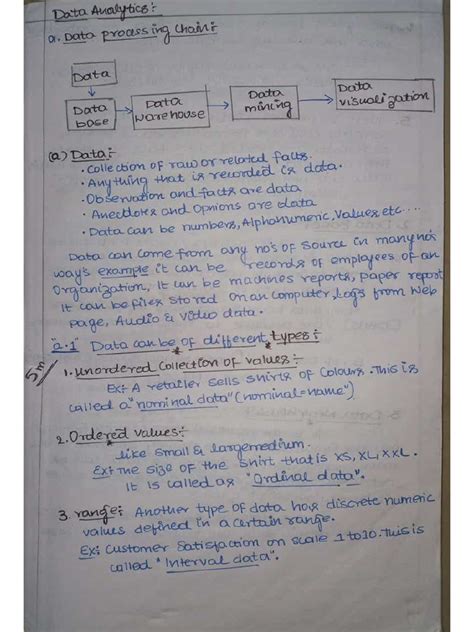 Data Analytics:-
a. Data processing chain:-
Data
Data base
Data warehouse
Data mining
Data visualization
(a) Data:-
• Collection of raw or related facts.
• Anything that is recorded is data.
• Observation and facts are data
• Anecdotes and Opnions are data
• Data can be numbers, Alphanumeric, Values etc....
Data can come from any no's of source in many no's
way's example it can be records of employees of an
Organization, It can be machines reports, paper report
It can be files stored on an computer, Logs from Web
page, Audio & Video data.
"a.1" Data can be of different types:-
5m
1. Unordered Collection of values:-
Ex:- A retailer sells shirts of Colours. This is
called a "nominal data" (nominal=name")
2. Ordered values:-
like Small & large medium.
Ex:- The size of the shirt that is XS, XL, XXL.
It is called as "Ordinal data".
3. range:- Another type of data has discrete numeric
values defined in a certain range.
Ex:- Customer Satisfaction on scale 1 to 10. This is
called "Interval data".